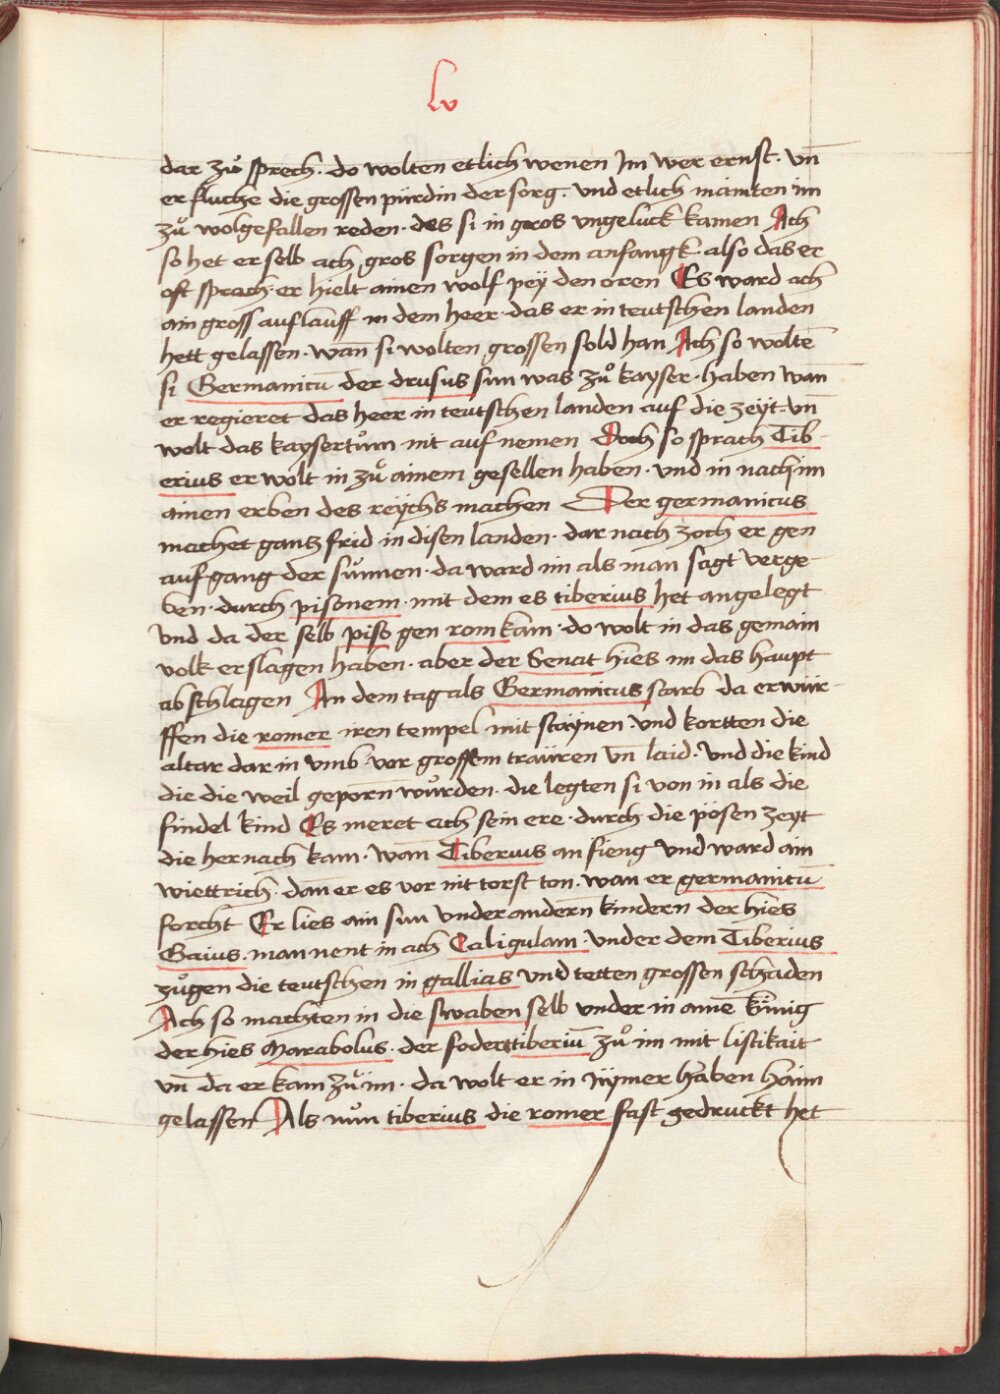 lv
dar zuͦ sprech · do wolten etlich wenen Im wer ernst · vn̄
er fluche die grossen pürdin der sorg · vnd etlich mainten im
zuͦ wolgefallen reden · des si in gros vngelück kamen Ach
so het er selb ach gros sorgen in dem anfangk · also das er
oft sprach · er hielt ainen wolf pey den oren Es ward ach
ain gross auflauff in dem heer · das er in teutschen landen
hett gelassen · wan̄ si wolten grossen sold han Ach so wolte̅
si Germanicu̅ der drusus sun was zuͦ kayser · haben wan̄
er regieret das heer in teutschen landen auf die zeyt · vn̄
wolt das kaysertuͦm nit auf nemen Doch so sprach Tib-
erius er wolt in zuͦ ainem gesellen haben · vnd in nach im
ainen erben des reychs machen Der germanicus
machet gantz frid in disen landen · dar nach zoch er gen
aufgang der sunnen · da ward im als man sagt verge-
ben · durch pisonem · mit dem es tiberius het angelegt
vnd da der selb piso gen rom kam · do wolt in das gemain
volk erslagen haben · aber der Senat hies im das haupt
abschlagen An dem tag als Germanicus starb da erwür-
ffen die romer iren tempel mit staynen vnd kortten die
altar dar in vmb vor grossem trauren vn̄ laid · vnd die kind
die die weil geporn̄ wurden · die legten si von in als die
findel kind Es meret ach sein ere · durch die pösen zeyt
die hernach kam · wan̄ Tiberius an fieng vnd ward ain
wiettrich · dan̄ er es vor nit torst ton · wan er germanicu̅
forcht Er lies ain sun vnder andern̄ kindern der hies
Gaius · man nent in ach Caligulam · vnder dem Tiberius
zugen die teutschen in gallias vnd tetten grossen schaden
Ach so machten in die swaben selb vnder in aine̅ künig
der hies Marabolus · der fodert tiberiu̅ zuͦ im mit listikait
vn̄ da er kam zuͦ im · da wolt er in nymer haben haim
gelassen Als nun tiberius die romer fast gedruckt het